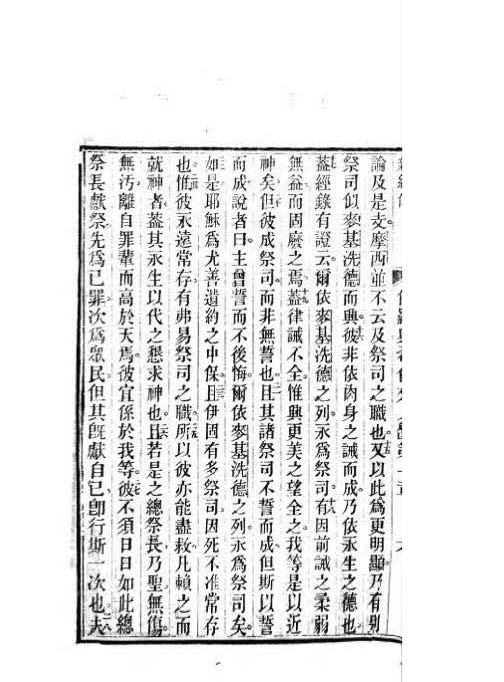 論及是支摩西並不云及祭司之職也又以此爲更明顯乃有別
祭司似麥基洗德而興彼非依肉身之誡而成乃依永生之德也
蓋經錄有證云爾依麥基洗德之列永爲祭司有因前誡之柔弱
無益而固廢之焉蓋律誡不全惟興更美之望全之我等是以近
神矣但彼成祭司而非無誓也且其諸祭司不誓而成但斯以誓
而成說者曰主曾誓而不後悔爾依麥基洗德之列永爲祭司矣
如是耶穌爲尤善遺約之中保且伊固有多祭司因死不准常存
也惟彼永遠常存有弗易祭司之職所以彼亦能盡救凡賴之而
就神者蓋其永生以代之懇求神也且若是之總祭長乃聖無傷
無汚離自罪輩而高於天焉彼宜係於我等彼不須日日如此總
祭長獻祭先爲已罪次爲眾民但其旣獻自已卽行斯一次也夫